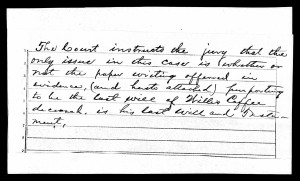 The Court instructs the jury that the
only issue in this case is whether or
not the paper writing offered in
evidence, (and hereto attached) purporting
to be the last will of Willis Coffee
deceased, is his last will and Testa-
ment,